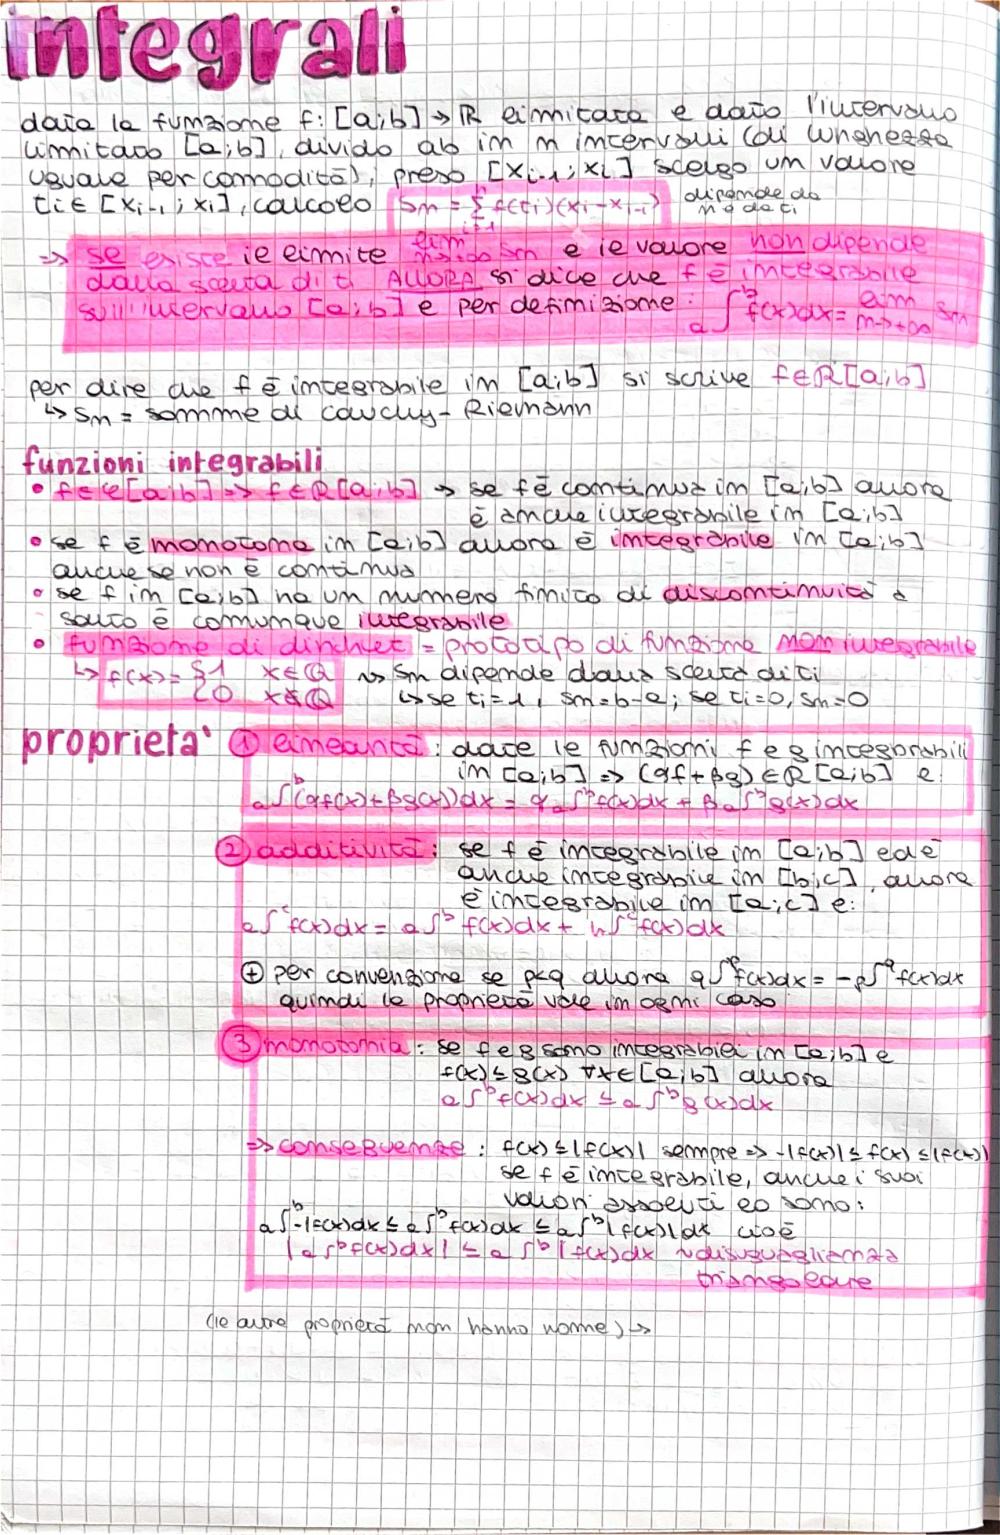 integrali
data la funzione f: [a;b] → ℝ limitata e dato l'intervallo
limitato [a;b], divido ab in n intervalli (di lunghezza
uguale per commodità), preso [xi-1; xi] scelgo un valore
ti ∈ [xi-1; xi], calcolo Sn = Σ f(ti)(xi-xi-1) dipende da
n e da ti
i=1
⇒ se esiste il limite lim n→+∞ Sn e il valore non dipende
dalla scelta di ti ALLORA si dice che f è integrabile
sull'intervallo [a;b] e per definizione: a∫b f(x)dx = lim n→+∞ Sn
per dire che f è integrabile in [a;b] si scrive f∈R[a;b]
↳ Sn = somme di Cauchy-Riemann
funzioni integrabili
• f∈C[a;b] ⇒ f∈R[a;b] → se f è continua in [a;b] allora
è anche integrabile in [a;b]
• se f è monotona in [a;b] allora è integrabile in [a;b]
anche se non è continua
• se f in [a;b] ha un numero finito di discontinuità a
salto è comunque integrabile
• funzione di dirichlet = prototipo di funzione non integrabile
↳ f(x) = {1 x∈ℚ ⇝ Sn dipende dalla scelta di ti
{0 x∉ℚ ↳ se ti=1, Sn=b-a; se ti=0, Sn=0
proprieta' ① linearità: date le funzioni f e g integrabili
in [a;b] ⇒ (αf+βg) ∈ R[a;b] e:
a∫b(αf(x)+βg(x))dx = α a∫b f(x)dx + β a∫b g(x)dx
② additività: se f è integrabile in [a;b] ed è
anche integrabile in [b;c], allora
è integrabile in [a;c] e:
a∫c f(x)dx = a∫b f(x)dx + b∫c f(x)dx
⊕ per convenzione se p<q allora q∫p f(x)dx = -p∫q f(x)dx
quindi la proprietà vale in ogni caso
③ monotonia: se f e g sono integrabili in [a;b] e
f(x) ≤ g(x) ∀x∈[a;b] allora
a∫b f(x)dx ≤ a∫b g(x)dx
⇒ conseguenze: f(x) ≤ |f(x)| sempre ⇒ -|f(x)| ≤ f(x) ≤ |f(x)|
se f è integrabile, anche i suoi
valori assoluti lo sono:
a∫b -|f(x)dx ≤ a∫b f(x)dx ≤ a∫b |f(x)|dx cioè
|a∫b f(x)dx| ≤ a∫b |f(x)dx ~disuguaglianza
triangolare
(le altre proprietà non hanno nome) →